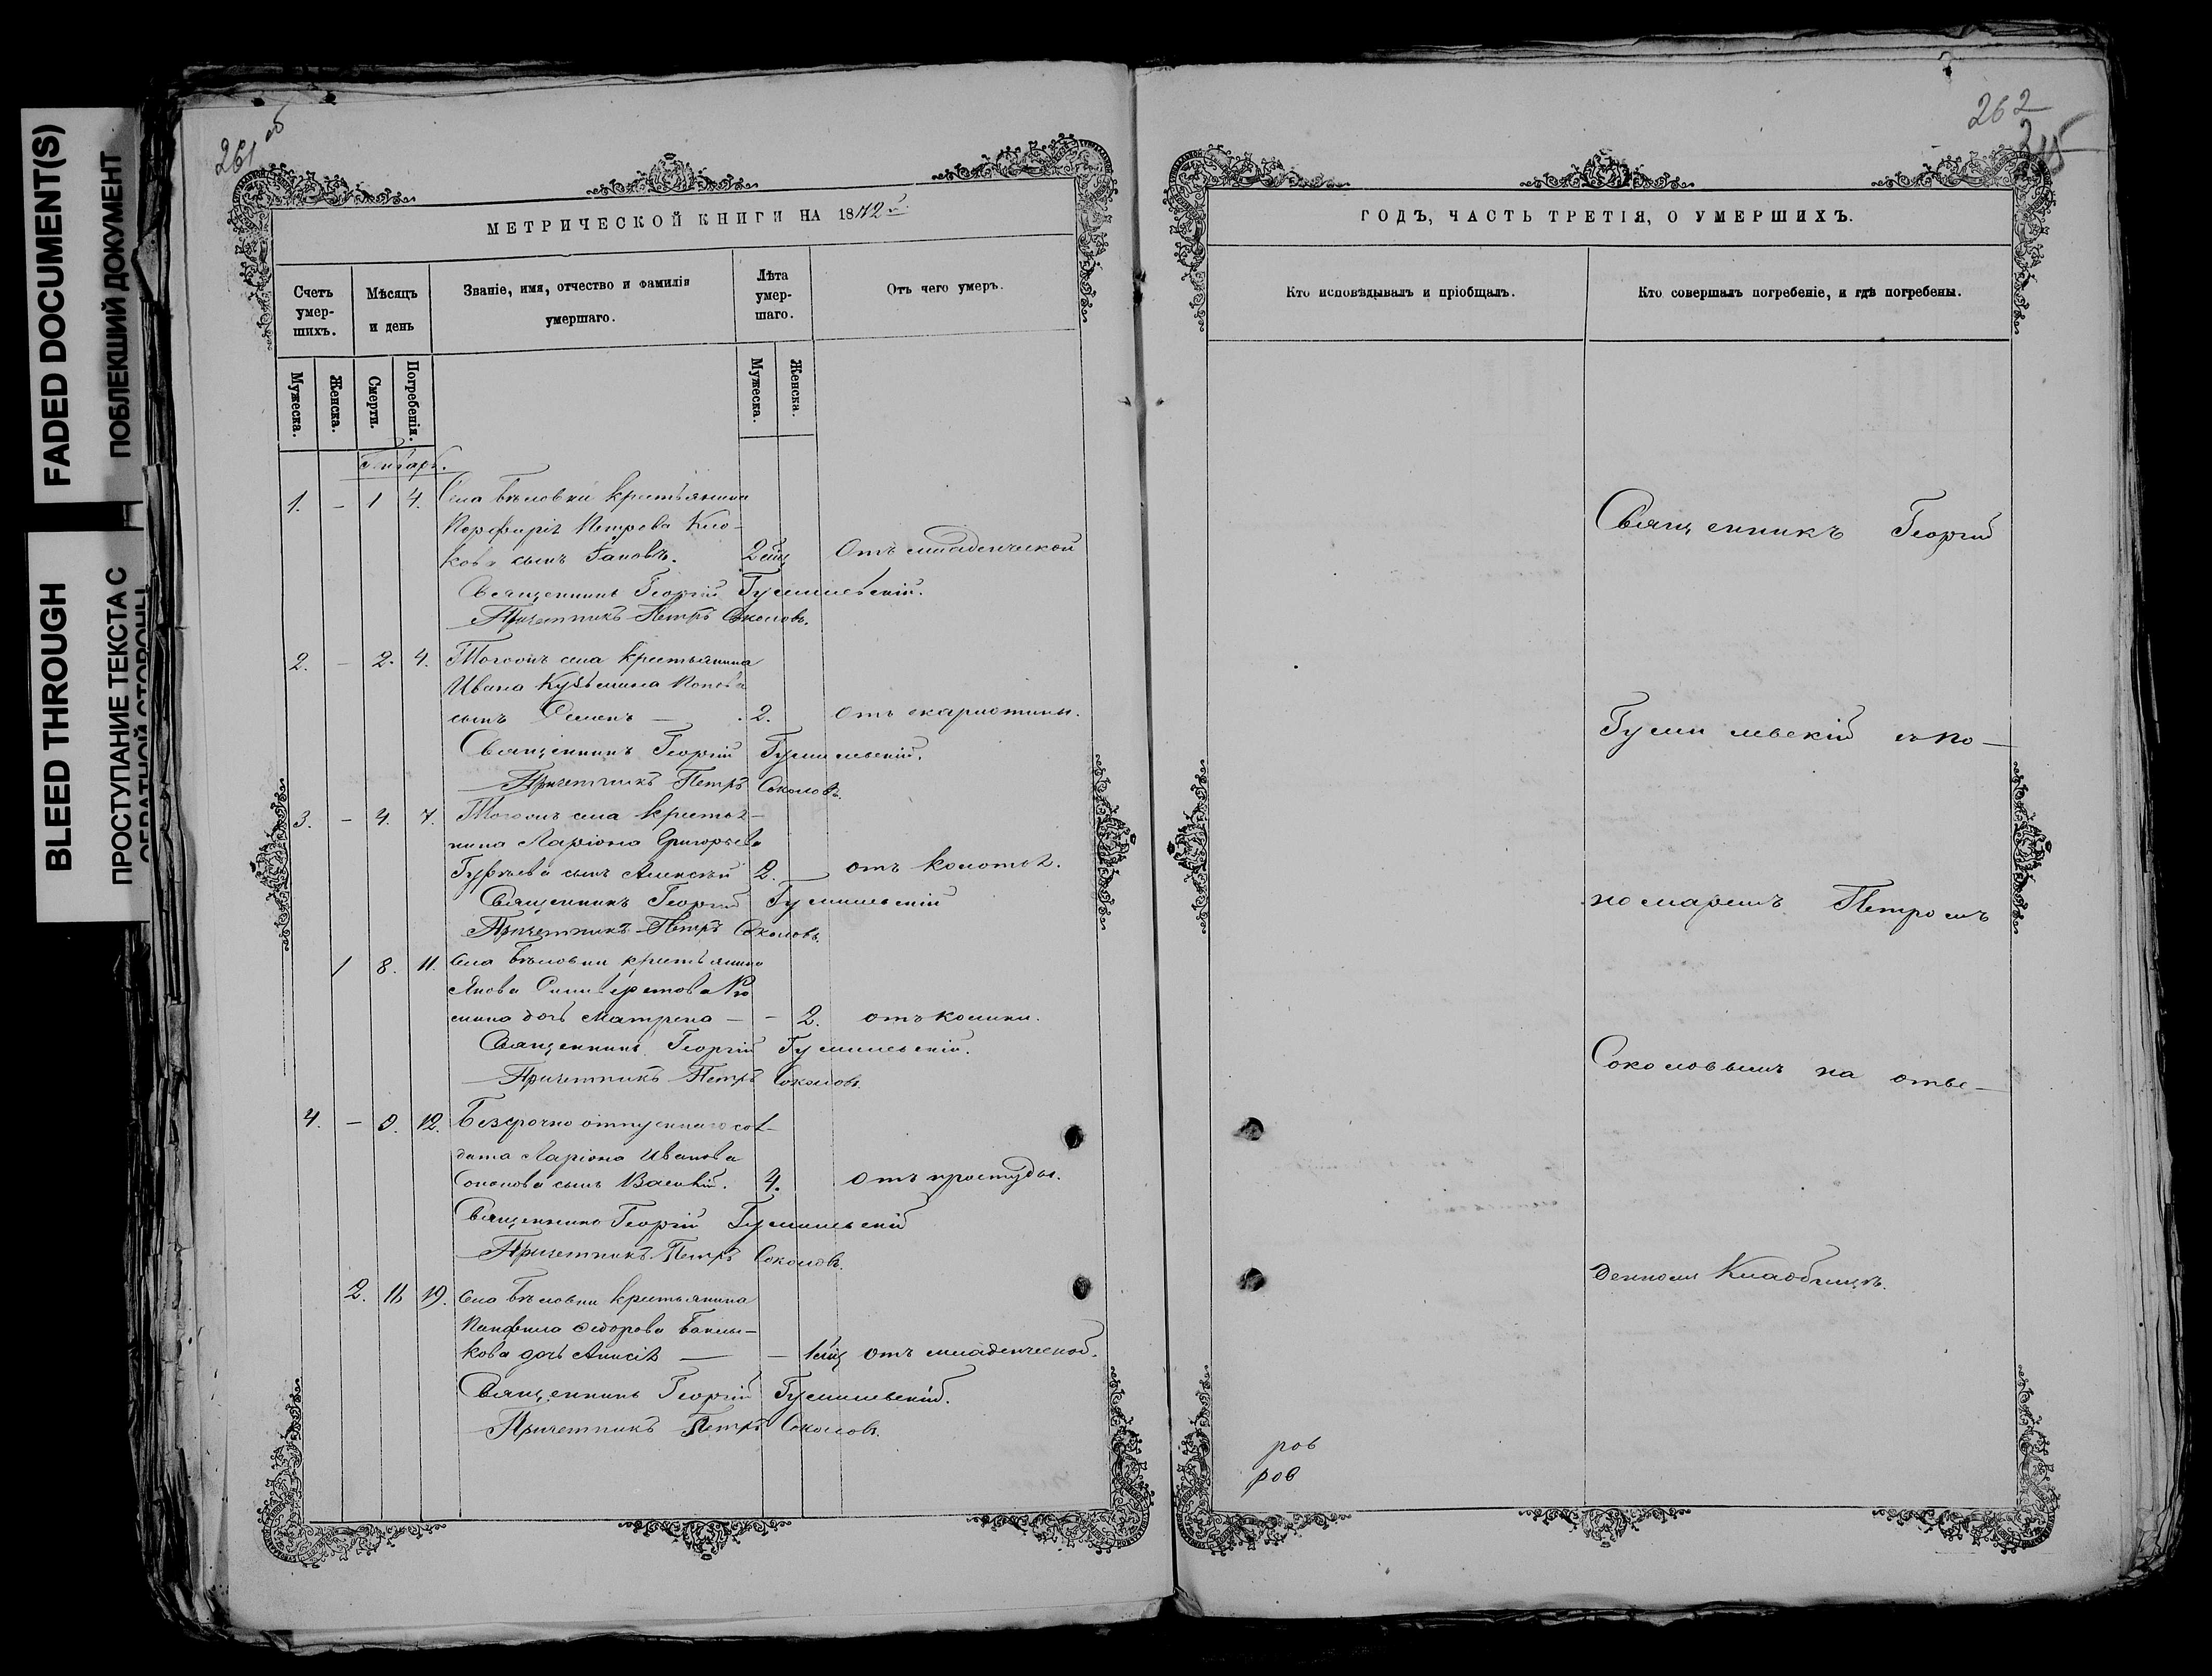 FADED DOCUMENT(S)
ПОБЛЕКШИЙ ДОКУМЕНТ
BLEED THROUGH
ПРОСТУПАНИЕ ТЕКСТА С
ОБРАТНОЙ СТОРОНЫ
261 об
МЕТРИЧЕСКОЙ КНИГИ НА 1872й
Счетъ умер-шихъ.
Мѣсяцъ и день
Званіе, имя, отчество и фамилія умершаго.
Лѣта умер-шаго.
Отъ чего умеръ.
Мужеска.
Женска.
Смерти.
Погребенія.
Мужеска.
Женска.
Январь.
1. – 1 4. Села Бѣловки крестьянина
Порфирія Петрова
кова сынъ Іаковъ. Отъ младенческой
Священникъ Георгій Гумилевскій.
Причетникъ Петръ Соколовъ.
2. – 2. 4. Тогожъ села крестьянина
Ивана Кузьмина Попова
сынъ Семенъ — 2. отъ скарлотины.
Священникъ Георгій Гумилевскій.
Причетникъ Петръ Соколовъ.
3. – 4. 7. Тогожъ села крестья-
нина Ларіона Григорьева
Гурьева сынъ Алексѣй 2. — отъ колотья.
Священникъ Георгій Гумилевскій
Причетникъ Петръ Соколовъ.
1 8. 11. Села Бѣловки крестьянина
Якова
мина дочь Матрена — – 2. отъ колики.
Священникъ Георгій Гумилевскій.
Причетникъ Петръ Соколовъ.
4. – 9. 12. Безсрочно отпускнаго сол-
дата Ларіона Иванова
сынъ Василій. 4. отъ простуды.
Священникъ Георгій Гумилевскій
Причетникъ Петръ Соколовъ.
2. 11 19. Села Бѣловки крестьянина
Панфила Федорова
кова дочь Анисія — – отъ младенческой.
Священникъ Георгій Гумилевскій.
Причетникъ Петръ Соколовъ.
262
ГОДЪ, ЧАСТЬ ТРЕТІЯ, О УМЕРШИХЪ.
Кто исповѣдывалъ и пріобщалъ.
Кто совершалъ погребеніе, и гдѣ погребены.
Священникъ Георгій
Гумилевскій съ по-
номаремъ Петромъ
Соколовымъ на отве-
денномъ Кладбищѣ.
ров
ров